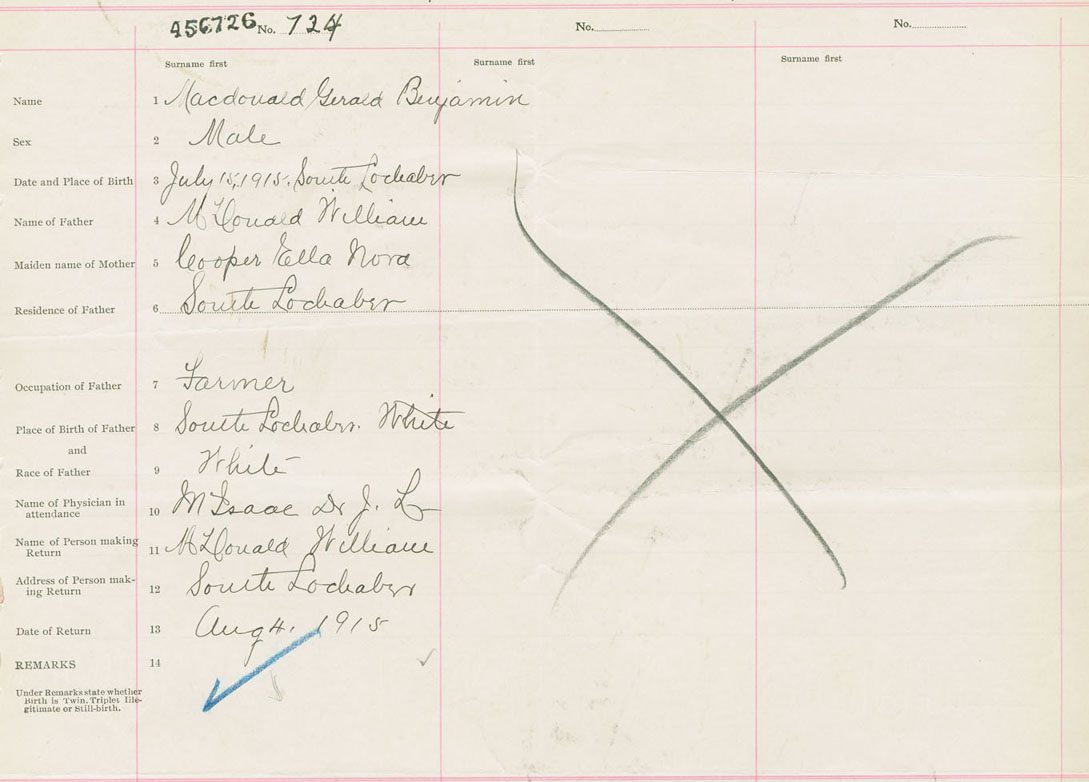 456726 No. 724 No. No.
Surname first Surname first Surname first
Name 1 Macdonald Gerald Benjamin
Sex 2 Male
Date and Place of Birth 3 July 15, 1915. South Lochaber
Name of Father 4 McDonald William
Maiden name of Mother 5 Cooper Ella Nora
Residence of Father 6 South Lochaber
Occupation of Father 7 Farmer
Place of Birth of Father 8 South Lochaber. White
and
Race of Father 9 White
Name of Physician in
attendance 10 McIsaac Dr J. L
Name of Person making
Return 11 McDonald William
Address of Person mak-
ing Return 12 South Lochaber
Date of Return 13 Aug 4. 1915
REMARKS 14
Under Remarks state whether
Birth is Twin, Triplet Ille-
gitimate or Still-birth.